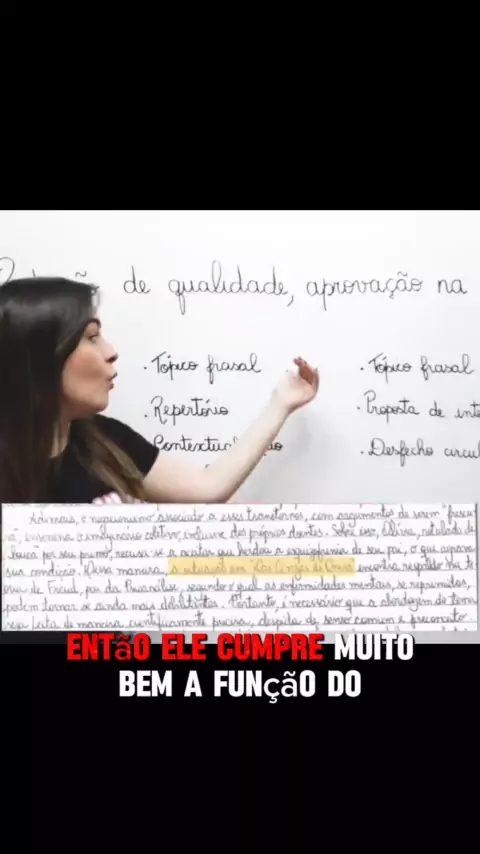 de qualidade, aprovação na
. Tópico frasal
. Tópico frasal
. Repertório
. Proposta de
. Desfecho
Ademais, o negacionismo associado a esses transtornos, com argumentos de serem
o imaginário coletivo, inclusive dos próprios doentes. Sobre isso, rotulada de
por seu primo, recusa-se a aceitar que herdou a esquizofrenia de seu pai, o que
sua condição. Dessa maneira, encontra respaldo na
de Freud, pai da Psicanálise, segundo o qual as enfermidades mentais, se reprimidas,
podem tornar-se ainda mais debilitantes. Portanto, é necessário que a abordagem do tema
seja feita de maneira cientificamente precisa, despida de senso comum e preconceito
ENTãO ELE CUMPRE MUITO
BEM A FUNçãO DO